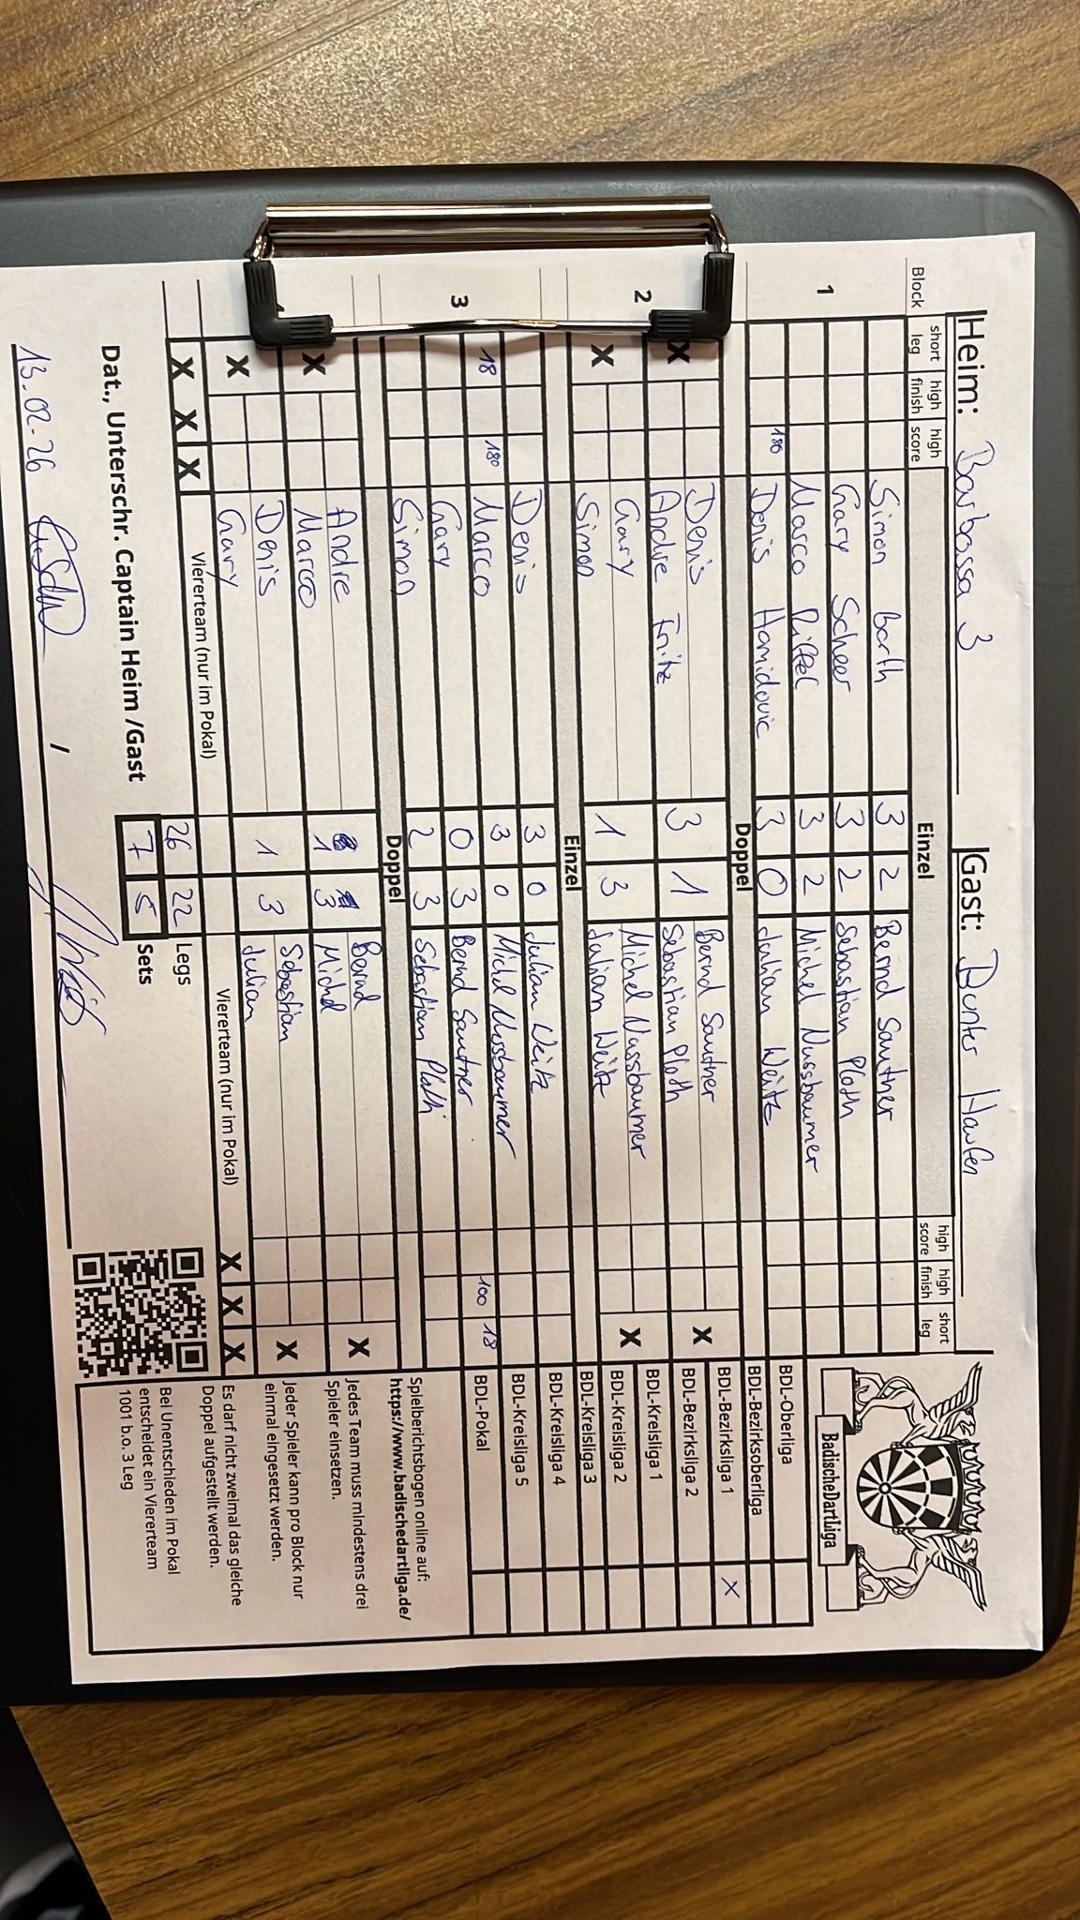 Heim: Barbossa 3 Gast: Bunter Haufen
Block short leg high finish high score Einzel high score high finish short leg
1
Simon Barth 3 2 Bernd Sautner
Gary Scheer 3 2 Sebastian Ploth
Marco Rittel 3 2 Michel Nussbaumer
180 Denis Hamidovic 3 0 Julian Weitz
Doppel
2
X Denis 3 1 Bernd Sautner X
Andre Fritz Sebastian Ploth
X Gary 1 3 Michel Nussbaumer X
Simon Julian Weitz
Einzel
3
Denis 3 0 Julian Weitz
18 180 Marco 3 0 Michel Nussbaumer
Gary 0 3 Bernd Sautner 100 18
Simon 2 3 Sebastian Ploth
Doppel
X Andre 1 3 Bernd X
Marco Michel
X Denis 1 3 Sebastian X
Gary Julian
X X X Viererteam (nur im Pokal) Viererteam (nur im Pokal) X X X
26 22 Legs
7 5 Sets
Dat., Unterschr. Captain Heim /Gast
13.02.26 /
BadischeDartLiga
BDL-Oberliga
BDL-Bezirksoberliga
BDL-Bezirksliga 1 X
BDL-Bezirksliga 2
BDL-Kreisliga 1
BDL-Kreisliga 2
BDL-Kreisliga 3
BDL-Kreisliga 4
BDL-Kreisliga 5
BDL-Pokal
Spielberichtsbogen online auf:
https://www.badischedartliga.de/
Jedes Team muss mindestens drei
Spieler einsetzen.
Jeder Spieler kann pro Block nur
einmal eingesetzt werden.
Es darf nicht zweimal das gleiche
Doppel aufgestellt werden.
Bei Unentschieden im Pokal
entscheidet ein Viererteam
1001 b.o. 3 Leg